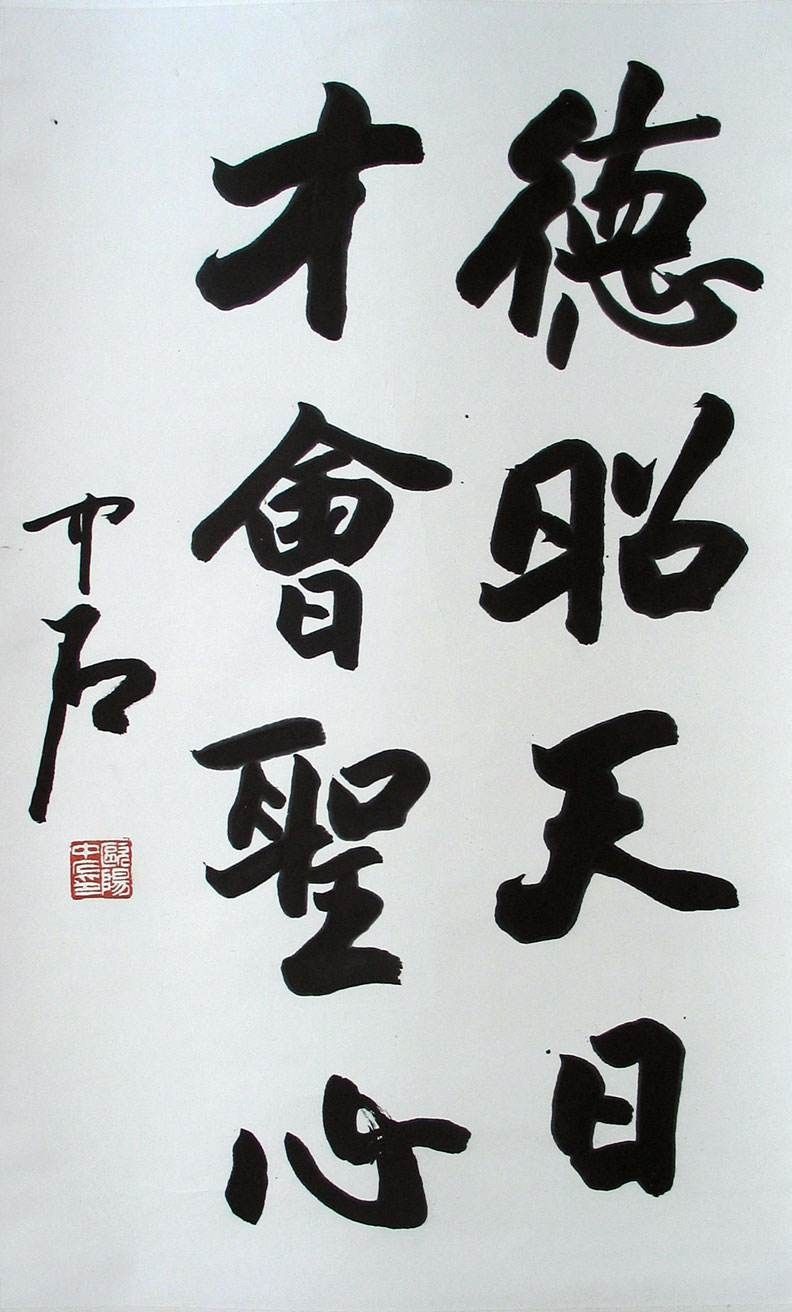 德昭天日
才會聖心
中石
歐陽中石